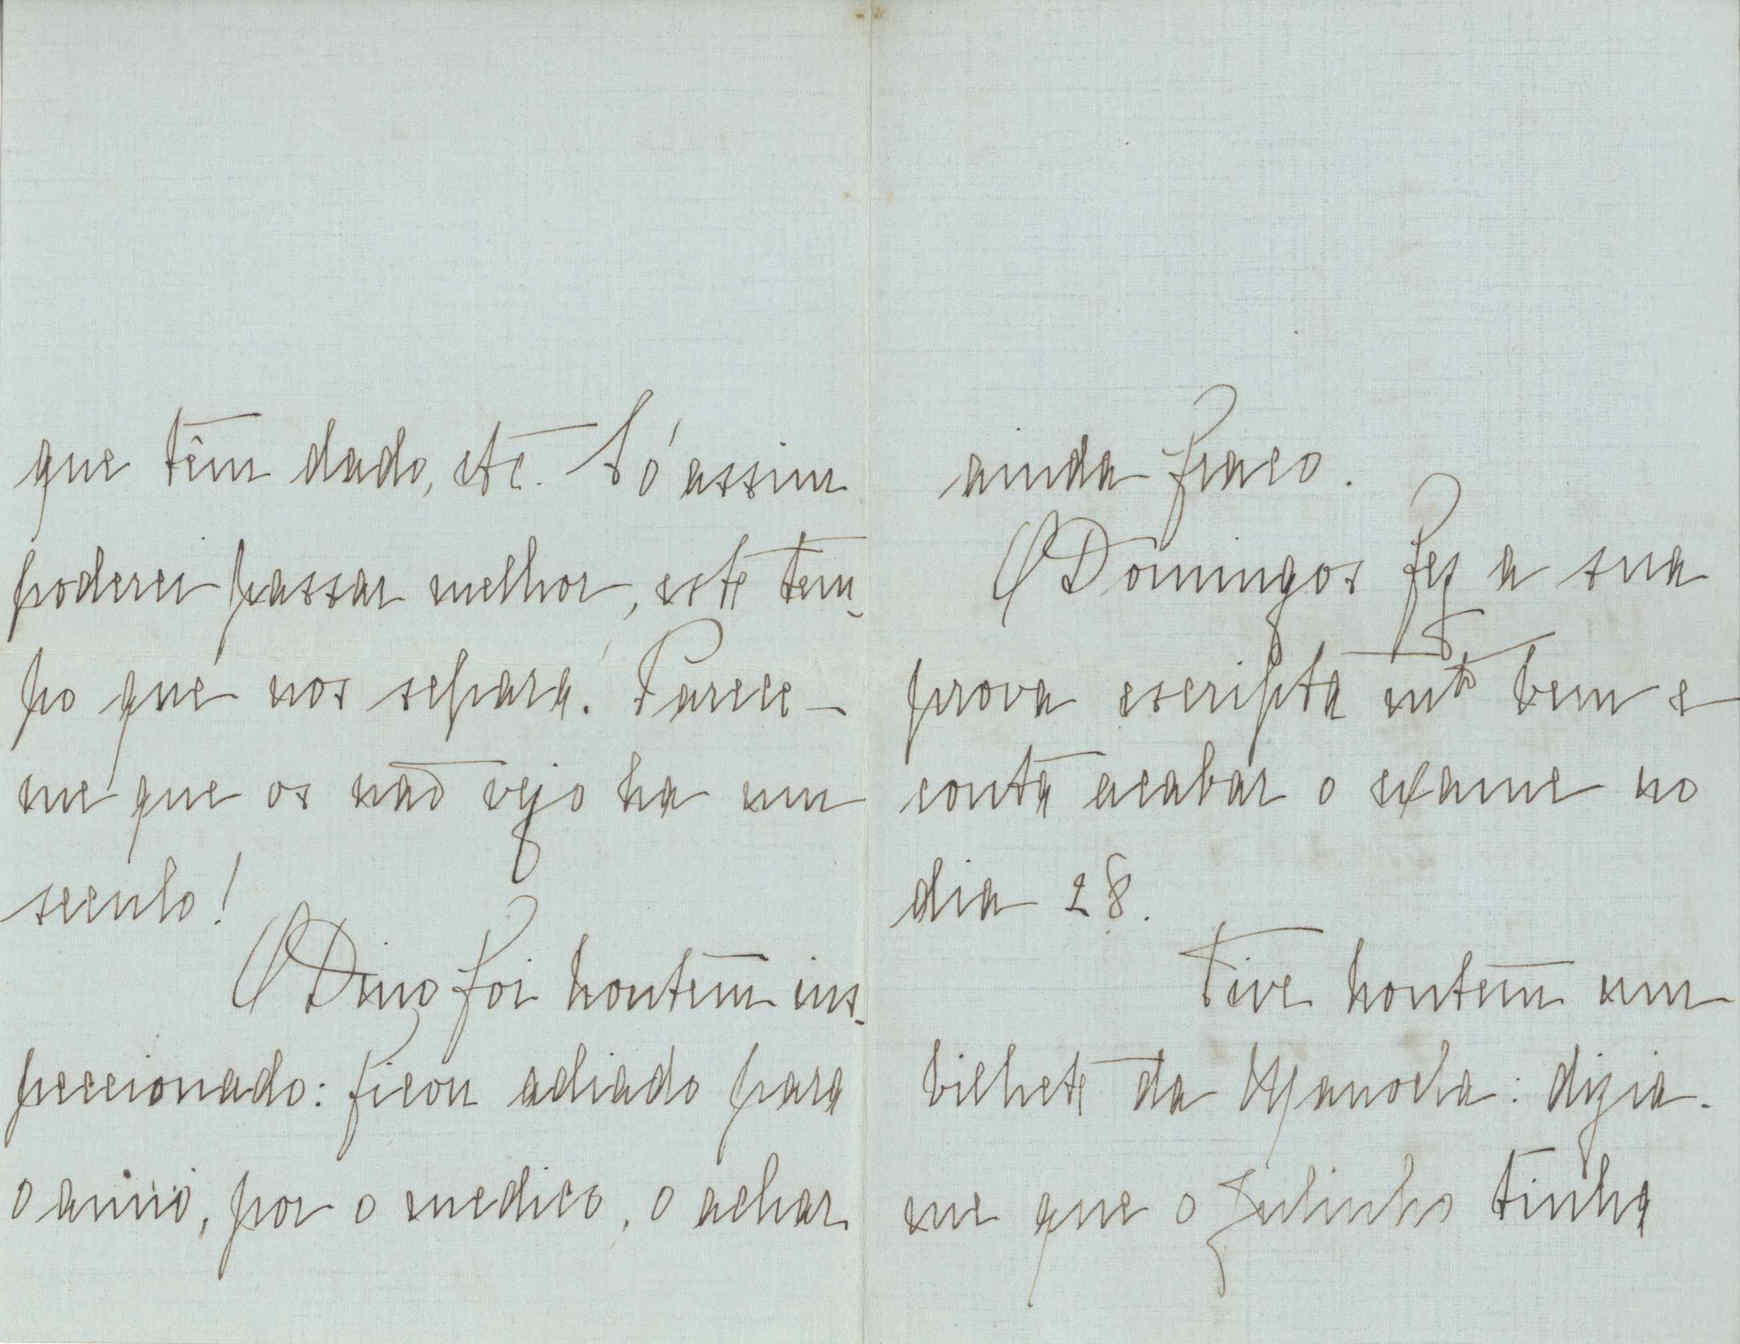 que têm dado, etc. Só assim
poderei passar melhor, este tem-
po que nos separa. Parece-
me que os não vejo ha um
seculo!
O Dino foi hontem ins-
peccionado: ficou adiado para
o anno, por o medico, o achar
ainda fraco.
O Domingos fez a sua
prova escripta mto bem e
conta acabar o exame no
dia 28.
Tive hontem um
bilhete da Manoela: dizia-
me que o Julinho tinha